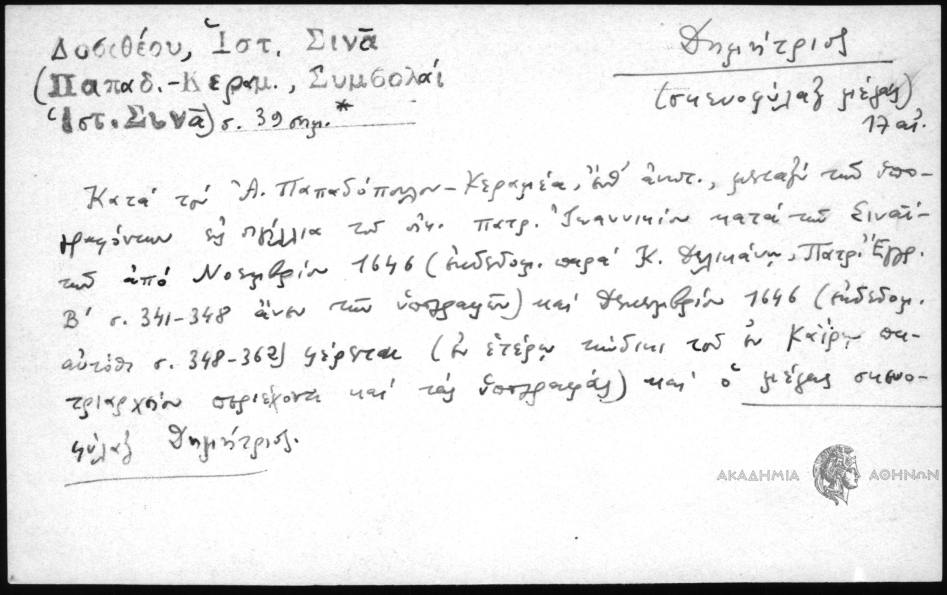 Δοσιθέου, Ἱστ. Σινᾶ
(Παπαδ.-Κεραμ., Συμβολαί
Ἱστ. Σινᾶ) σ. 39 σημ. *
Δημήτριος
(σκευοφύλαξ μέγας)
17 αἰ.
Κατά τόν Ἀ. Παπαδόπουλον-Κεραμέα, ἔνθ' ἀνωτ., μεταξύ τῶν ὑπο-
γραφόντων εἰς σιγίλλια τοῦ οἰκ. πατρ. Ἰωαννικίου κατά τῶν Σιναϊ-
τῶν ἀπό Νοεμβρίου 1646 (ἐκδεδομ. παρά Κ. Δελικάνῃ, Πατρ. Ἔγγρ.
Β' σ. 341-348 ἄνευ τῶν ὑπογραφῶν) καί Δεκεμβρίου 1646 (ἐκδεδομ.
αὐτόθι σ. 348-362) φέρεται (ἐν ἑτέρῳ κώδικι τοῦ ἐν Καΐρῳ πα-
τριαρχείου περιέχοντι καί τάς ὑπογραφάς) καί ὁ μέγας σκευο-
φύλαξ Δημήτριος.
ΑΚΑΔΗΜΙΑ ΑΘΗΝΩΝ